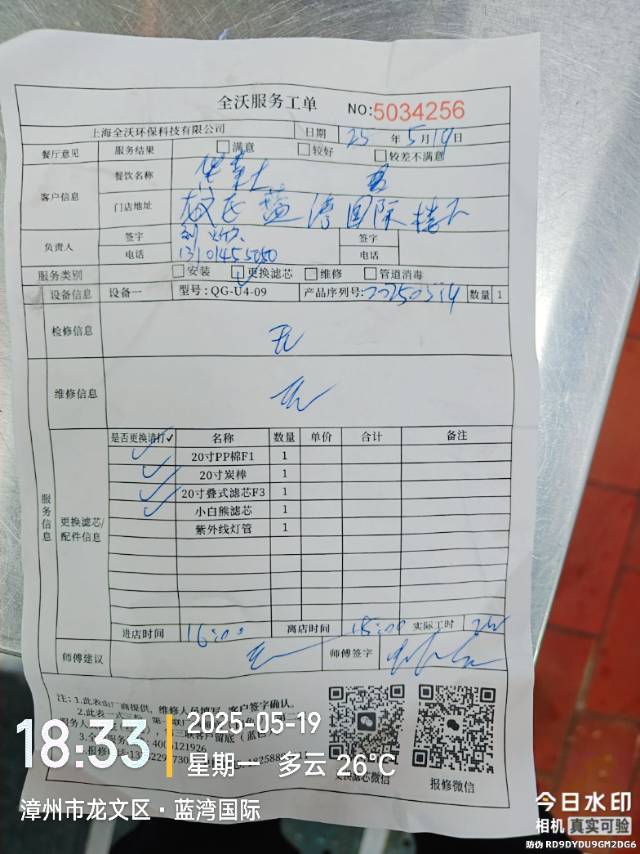 全沃服务工单 NO:5034256
上海全沃环保科技有限公司 日期 25 年 5 月 19 日
餐厅意见 服务结果 满意 较好 较差不满意
客户信息 餐饮名称 华莱士
门店地址 蓝湾国际楼下
负责人 签字 签字
电话 电话
服务类别 安装 更换滤芯 维修 管道消毒
设备信息 设备一 型号:QG-U4-09 产品序列号: 数量 1
检修信息 无
维修信息 无
服务信息
更换滤芯/配件信息
是否更换请打✓ 名称 数量 单价 合计 备注
✓ 20寸PP棉F1 1
✓ 20寸炭棒 1
✓ 20寸叠式滤芯F3 1
✓ 小白熊滤芯 1
紫外线灯管 1
进店时间 16:00 离店时间 18:00 实际工时
师傅建议 无 师傅签字
注: 1.此表由厂商提供, 维修人员填写, 客户签字确认。
2.此表一式三
更换滤芯微信 报修微信
18:33
2025-05-19
星期一 多云 26°C
漳州市龙文区·蓝湾国际
今日水印
相机 真实可验
防伪 RD9DYDU9GM2DG6